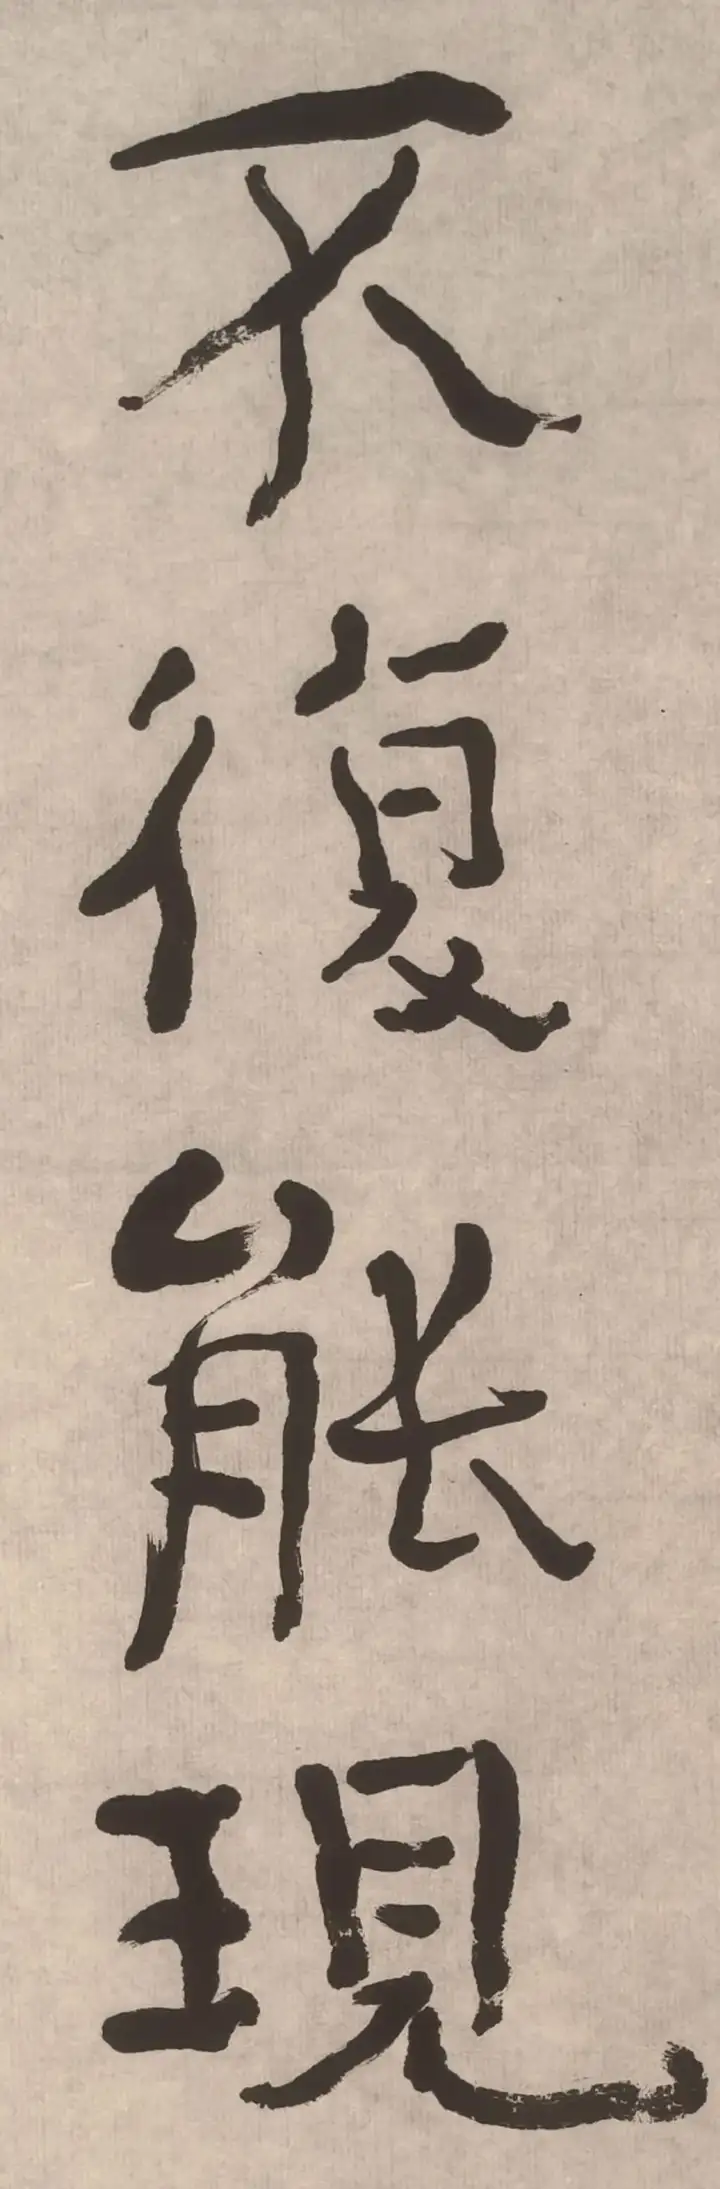 不復能現